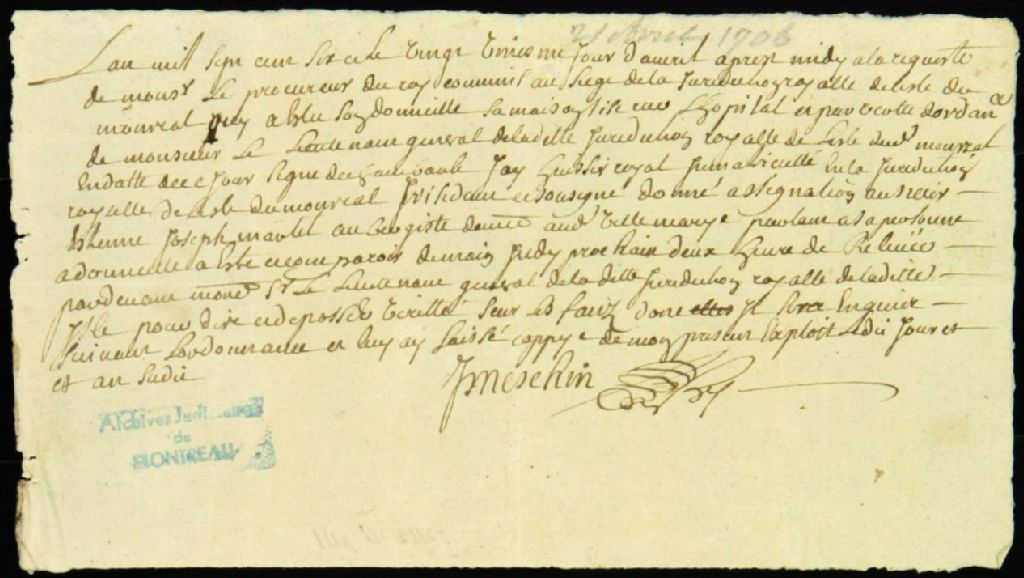 21 Avril 1706
Lan mil sept cent six et le vingt uniesme Jour davril apres midy a la requeste
de monsr le procureur du roy commis au siege de la Juridiction royalle de lisle du
montreal qui a eslu son domicille sa maison sise rue Lhopital et par vertu dordance
de monsieur Le Lieutenant general de la ditte Juridiction royalle de Lisle dud montreal
En datte de ce Jour signé Jay huissier royal Immatriculé En la Juridiction
royalle de lisle du montreal y residant et sousigné donné assignation au sieur
Estienne Joseph martel au Logis de ville marye parlant a sa personne
a domicille a Estre et comparoir demain Judy prochain deux heure de Relevée
pardevant mond sr Le Lieutenant general de la ditte Juridiction royalle de laditte
Isle pour dire et deposser veritté sur les faits dont Il sera Enquier
suivant Lordonnance et luy ay laissé coppye de mon present Exploit Ledit Jour et
et an susdit
JMeschin
Archives Judiciaires
de
MONTREAL